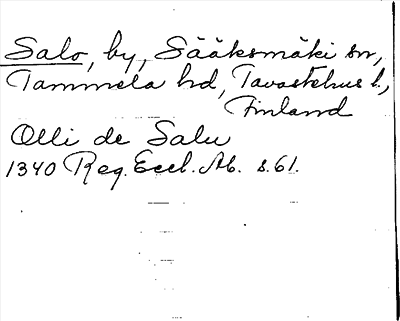 Salo, by, Sääksmäki sn,
Tammela hd, Tavastehus l.,
Finland
Olli de Salu
1340 Reg. Eccl. Ab. s. 61.